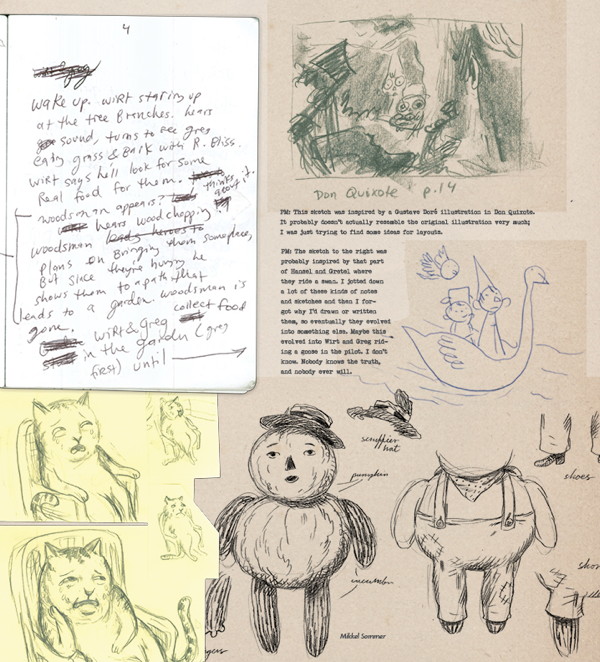 4
wake up. wirt staring up
at the tree branches. hears
sound, turns to see greg
eating grass & Bark with R. Bliss.
wirt says hell look for some
Real food for them.
thinks about it.
woodsman appears?
hears wood chopping.
woodsman
plans on Bringing them someplace,
But since they're hungry he
shows them to a path that
leads to a garden. woodsman is
gone.
collect food
wirt & Greg
in the garden (greg
first) until
Don Quixote p.14
PM: This sketch was inspired by a Gustave Doré illustration in Don Quixote.
It probably doesn't actually resemble the original illustration very much;
I was just trying to find some ideas for layouts.
PM: The sketch to the right was
probably inspired by that part
of Hansel and Gretel where
they ride a swan. I jotted down
a lot of these kinds of notes
and sketches and then I for-
got why I'd drawn or written
them, so eventually they evolved
into something else. Maybe this
evolved into Wirt and Greg rid-
ing a goose in the pilot. I don't
know. Nobody knows the truth,
and nobody ever will.
scruffier
hat
pumpkin
cucumber
shoes
Mikkel Sommer